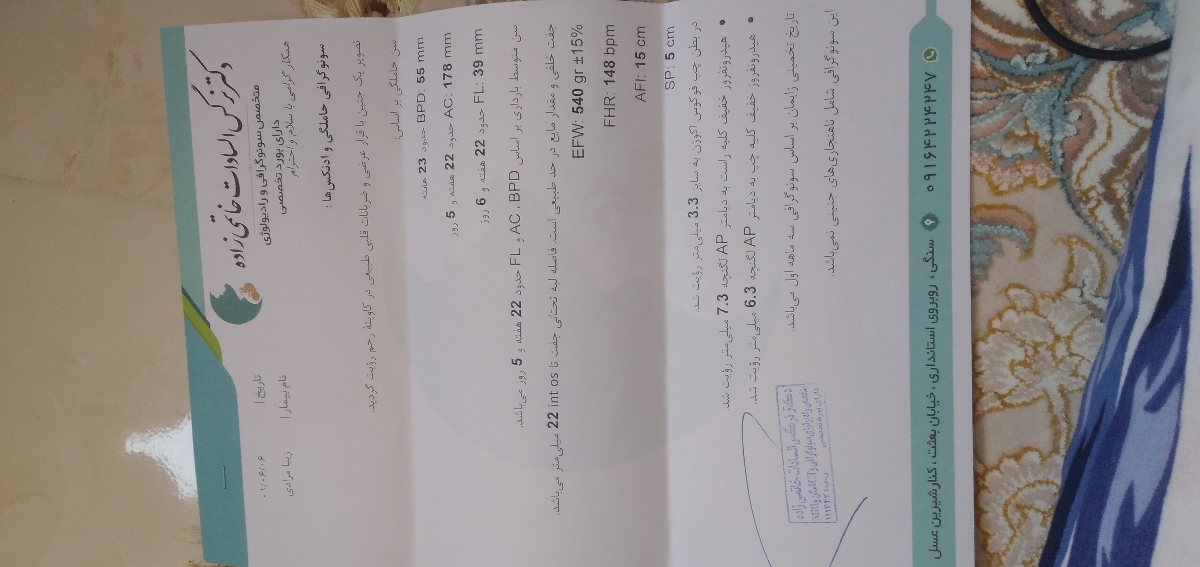 دکتر نرگس السادات خاتمی زاده
متخصص سونوگرافی و رادیولوژی
دارای بورد تخصصی
تاریخ: ۰۱/۰۶/۰۶
نام بیمار: زیبا مرادی
همکار گرامی با سلام و احترام
سونوگرافی حاملگی و ادنکس‌ها :
تصویر یک جنین با قرار عرضی و ضربانات قلبی طبیعی در کاویتهٔ رحم رؤیت گردید.
سن حاملگی بر اساس:
BPD: 55 mm حدود 23 هفته
AC: 178 mm حدود 22 هفته و 5 روز
FL: 39 mm حدود 22 هفته و 6 روز
سن متوسط بارداری بر اساس AC ، BPD و FL حدود 22 هفته و 5 روز می‌باشد.
جفت خلفی و مقدار مایع در حد طبیعی است. فاصله لبه تحتانی جفت تا int os 22 میلی‌متر می‌باشد.
EFW: 540 gr ±15%
FHR: 148 bpm
AFI: 15 cm
SP: 5 cm
در بطن چپ فوکوس اکوژن به سایز 3.3 میلی‌متر رؤیت شد.
• هیدرونفروز خفیف کلیه راست به دیامتر AP لگنچه 7.3 میلی‌متر رؤیت شد.
• هیدرونفروز خفیف کلیه چپ به دیامتر AP لگنچه 6.3 میلی‌متر رؤیت شد.
تاریخ تخمینی زایمان بر اساس سونوگرافی سه ماهه اول می‌باشد.
این سونوگرافی شامل ناهنجاری‌های جنینی نمی‌باشد.
دکتر نرگس السادات خاتمی زاده
سنگی ، روبروی استانداری ، خیابان بعثت ، کنار شیرین عسل ۰۹۱۶۴۲۲۴۲۴۷